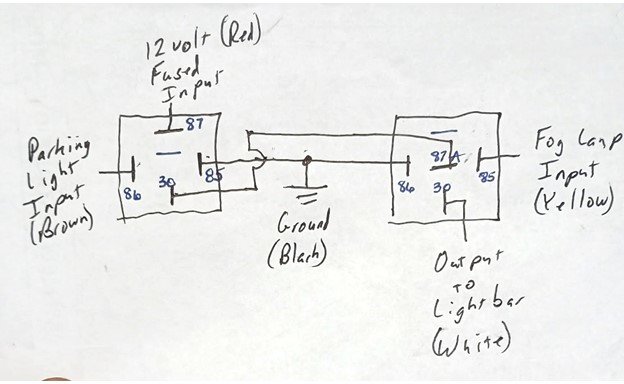 12 volt (Red)
Fused
Input
87
Parking
Light
Input
(Brown)
86
30
85
Ground
(Black)
87A
86
30
85
Fog Lamp
Input
(Yellow)
Output
to
Lightbar
(White)